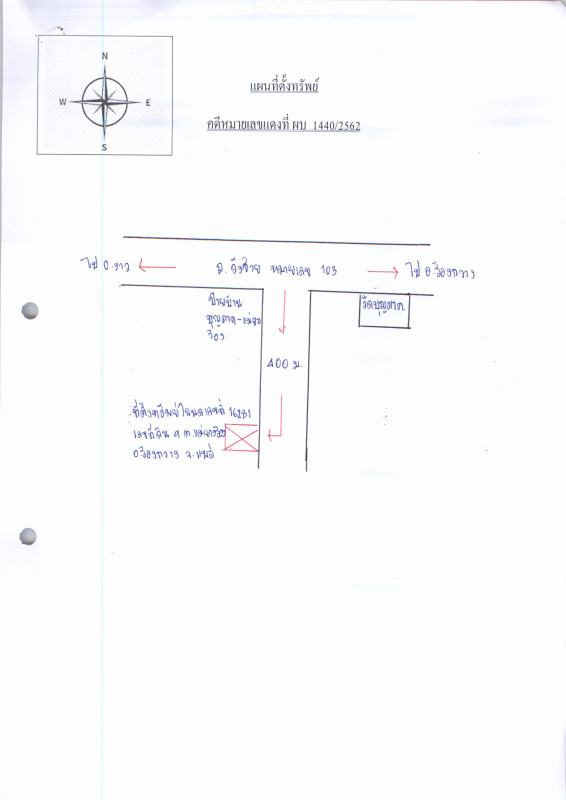 N
W E
S
แผนที่ตั้งทรัพย์
คดีหมายเลขแดงที่ ผบ 1440/2562
ไป อ.งาว
ถ. ยันตรกิจโกศล หมายเลข 103
ไป อ.ร้องกวาง
ป้ายบ้าน
บุญภาค-แม่
วัดบุญภาค
400 ม.
ที่ตั้งทรัพย์โฉนดเลขที่ 16281
เลขที่ดิน ๑ ต.แม่ยางร้อง
อ.ร้องกวาง จ.แพร่